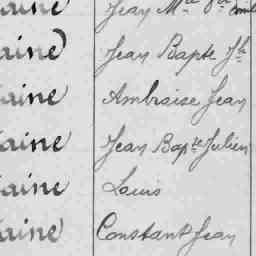 aine Jean M
aine) Jean Bapte Jh
aine Ambroise Jean
aine Jean Bapte Julien
aine Louis
aine Constant Jean